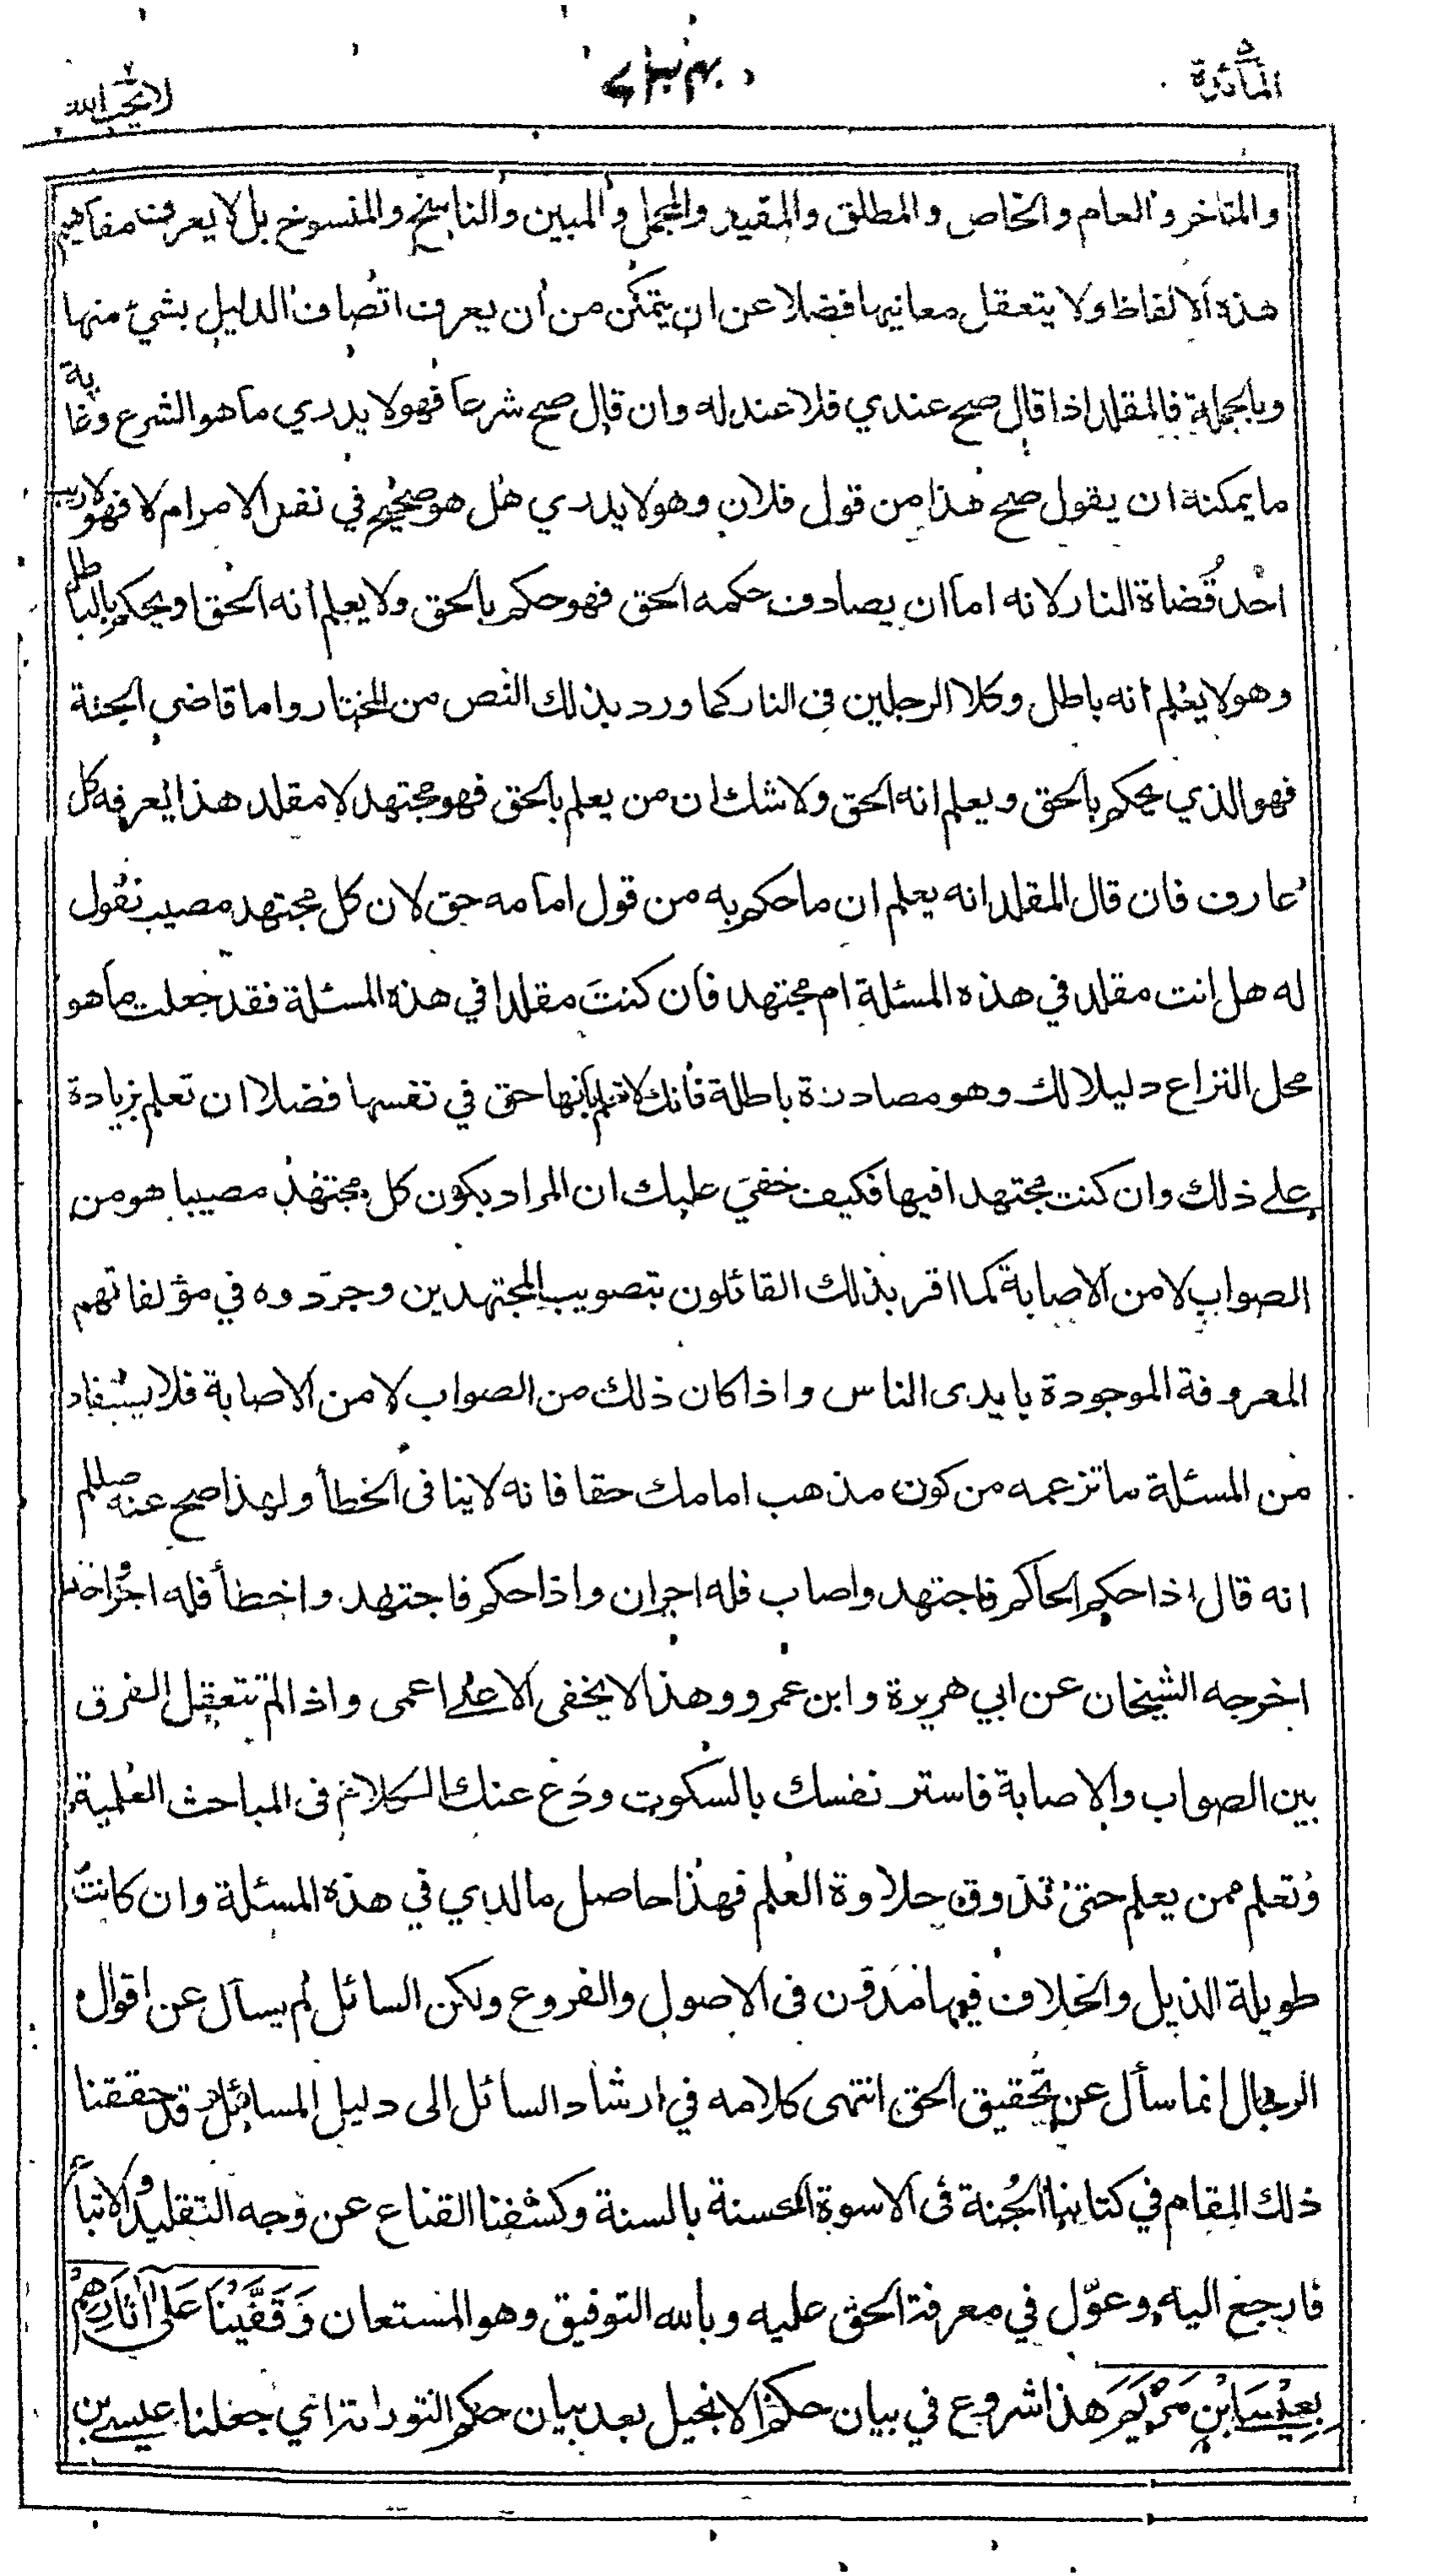 المائدة
لا يحب الله
والمتاخر والعام والخاص والمطلق والمقيد والمجمل والمبين والناسخ والمنسوخ بل لا يعرف مفاهيم
هذه الالفاظ ولا يتعقل معانيها فضلا عن ان يتمكن من ان يعرف اتصاف الدليل بشيء منها
وبالجملة فالمقلد اذا قال صح عندي فلا عند له وان قال صح شرعا فهو لا يدري ما هو الشرع وغاية
ما يمكنه ان يقول صح هذا من قول فلان وهو لا يدري هل هو صحيح في نفس الامر ام لا فهو لاريب
احد قضاة النار لانه اما ان يصادف حكمه الحق فهو حكم بالحق ولا يعلم انه الحق او يحكم بالباطل
وهو لا يعلم انه باطل وكلا الرجلين فى النار كما ورد بذلك النص من المختار واما قاضي الجنة
فهو الذي يحكم بالحق ويعلم انه الحق ولا شك ان من يعلم بالحق فهو مجتهد لا مقلد هذا يعرفه كل
عارف فان قال المقلد انه يعلم ان ما حكم به من قول امامه حق لان كل مجتهد مصيب نقول
له هل انت مقلد في هذه المسئلة ام مجتهد فان كنت مقلدا في هذه المسئلة فقد جعلت ما هو
محل النزاع دليلا لك وهو مصادرة باطلة فانك لا تعلم بأنها حق في نفسها فضلا ان تعلم بزيادة
على ذلك وان كنت مجتهدا فيها فكيف خفي عليك ان المراد بكون كل مجتهد مصيبا هو من
الصواب لا من الاصابة كما اقر بذلك القائلون بتصويب المجتهدين وحرّروه في مؤلفاتهم
المعروفة الموجودة بايدى الناس واذا كان ذلك من الصواب لا من الاصابة فلا يستفاد
من المسئلة ما تزعمه من كون مذهب امامك حقا فانه لا ينافى الخطأ ولهذا صح عنه صللم
انه قال اذا حكم الحاكم فاجتهد واصاب فله اجران واذا حكم فاجتهد واخطأ فله اجر
اخرجه الشيخان عن ابي هريرة وابن عمرو وهذا لا يخفى الا على اعمى واذا لم تتعقل الفرق
بين الصواب والاصابة فاستر نفسك بالسكوت ودع عنك الكلام فى المباحث العلمية
وتعلم ممن يعلم حتى تذوق حلاوة العلم فهذا حاصل ما لدي في هذه المسئلة وان كانت
طويلة الذيل والخلاف فيها مدوّن فى الاصول والفروع ولكن السائل لم يسأل عن اقوال
الرجال انما سأل عن تحقيق الحق انتهى كلامه في ارشاد السائل الى دليل المسائل وقد حققنا
ذلك المقام في كتابنا الجنة فى الاسوة الحسنة بالسنة وكشفنا القناع عن وجه التقليد والاتباع
فارجع اليه وعوّل في معرفة الحق عليه وبالله التوفيق وهو المستعان وَقَفَّيْنَا عَلَى اٰثَارِهِمْ
بِعِيْسَى ابْنِ مَرْيَمَ هذا شروع في بيان حكم الانجيل بعد بيان حكم التوراة اي جعلنا عيسى بن